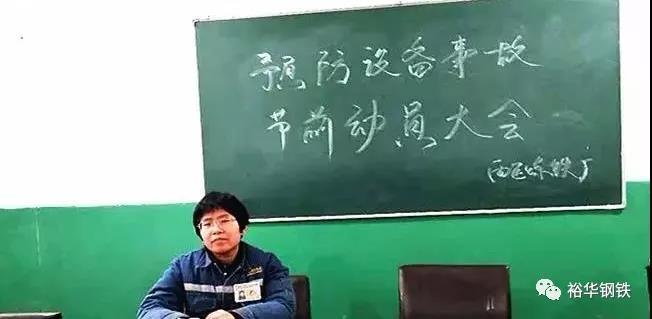 预防设备事故
节前动员大会
西区炼铁厂
裕华钢铁